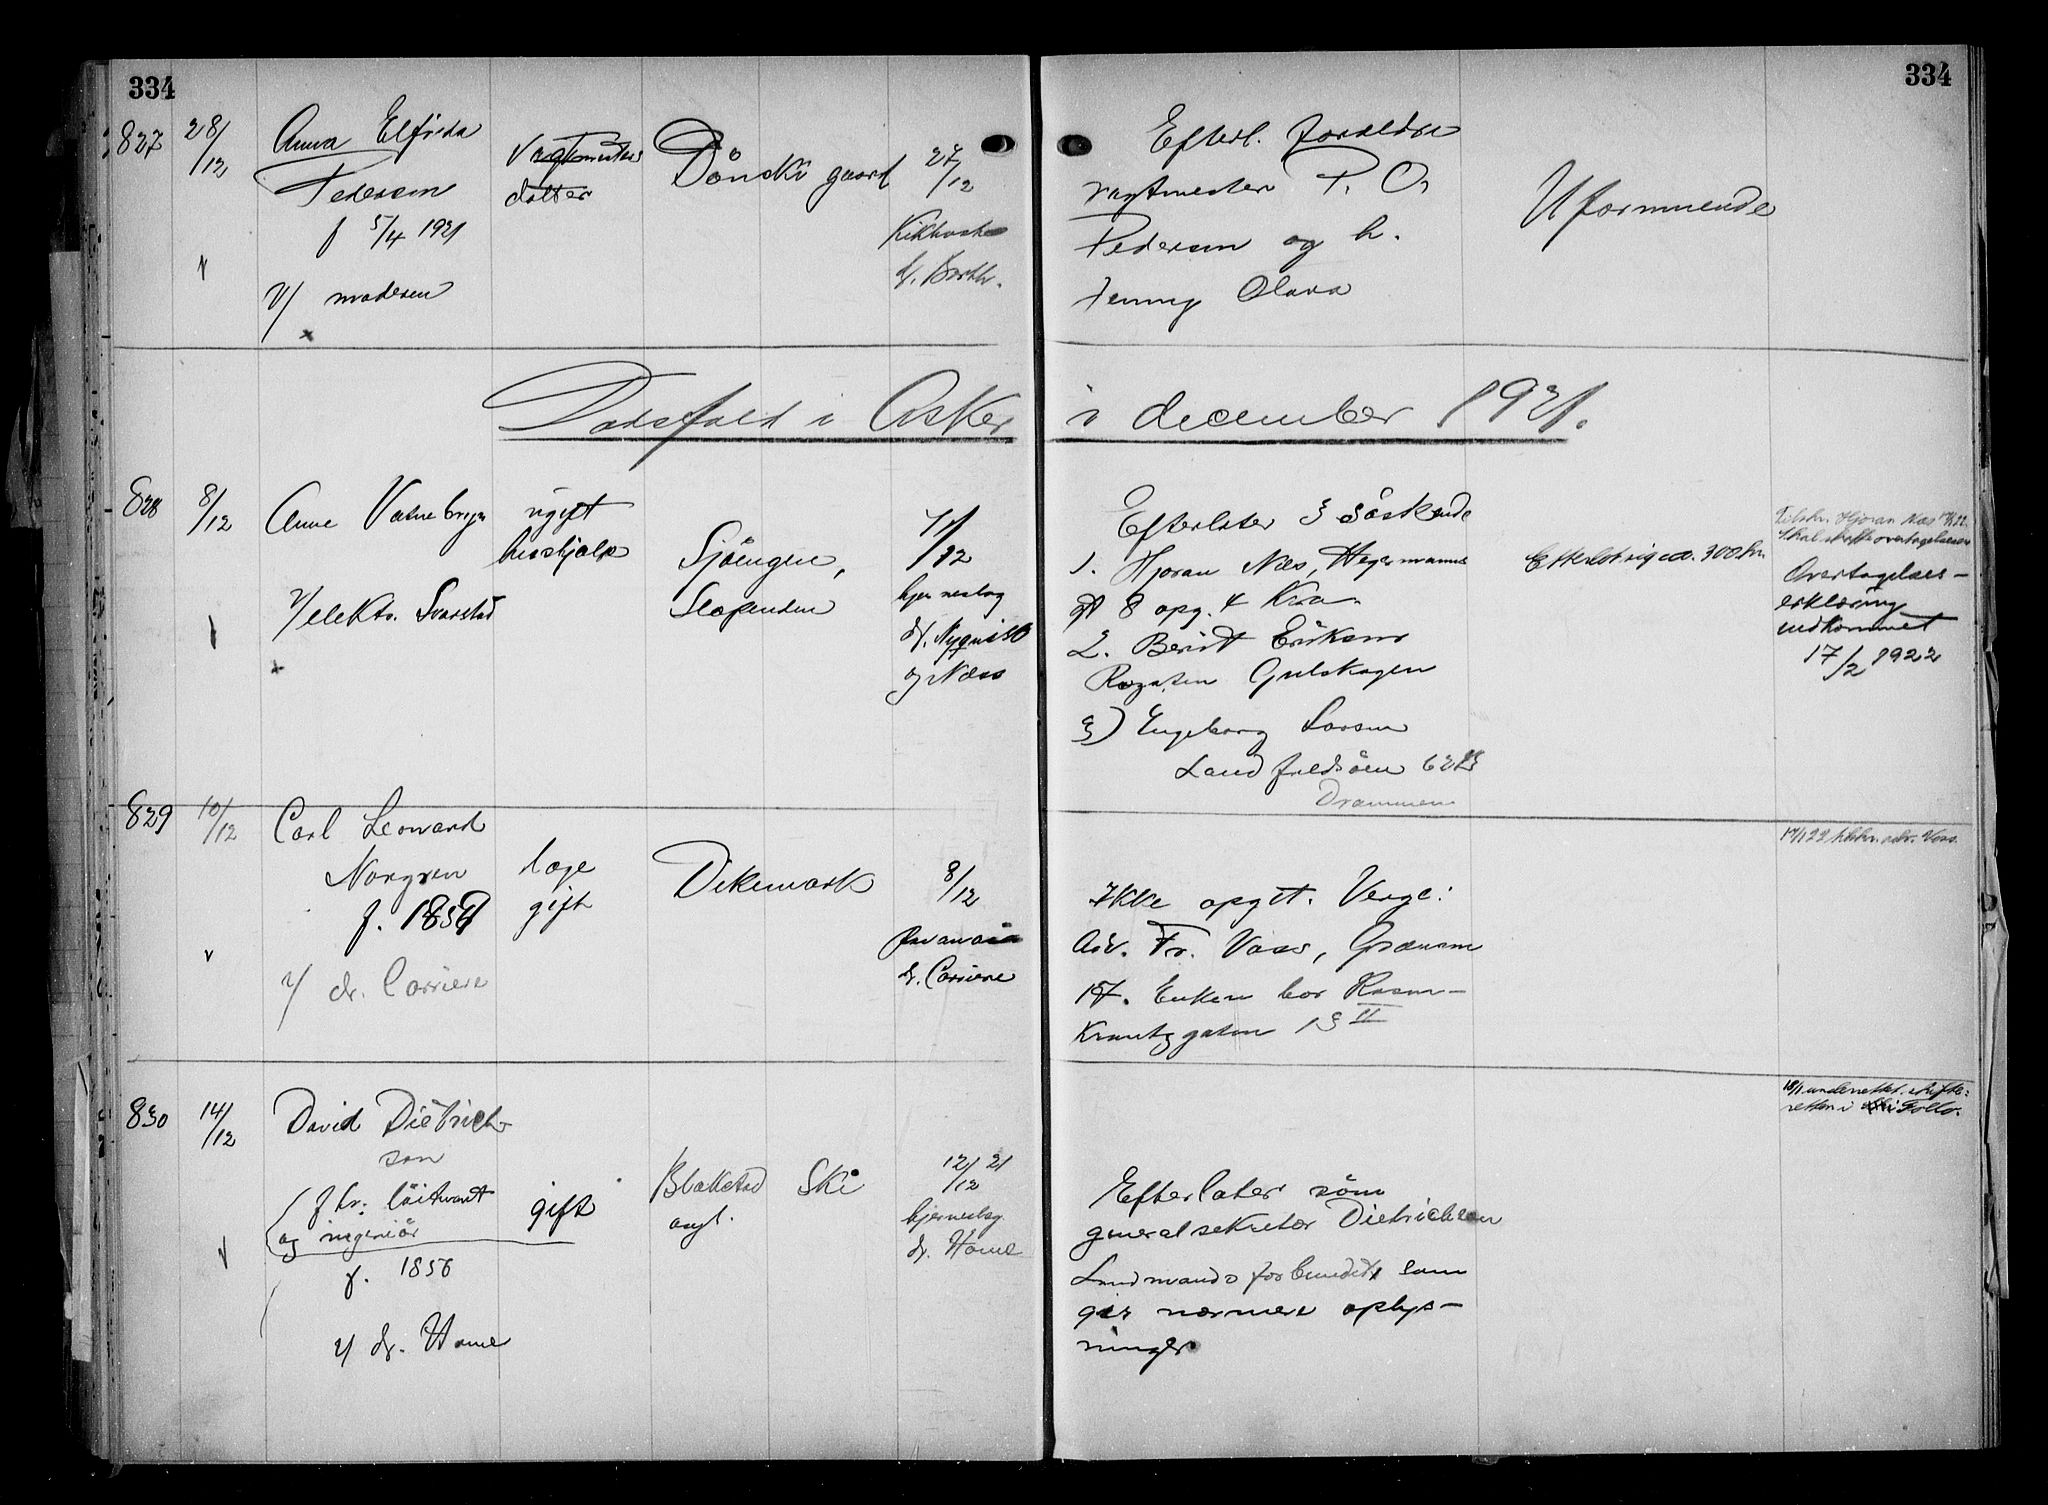 334
334
827
28/12
Anna Elfrida
Pedersen
f 5/4 1921
V/ moderen
Vagtmesters
datter
Dønski gaard
27/12
Kikhoste
Efterl. forældre
vagtmester P. O.
Pedersen og h.
Jenny Clara
Uformuende
Dødsfald i Asker
i december 1921.
828
8/12
Anne
V/ elektr. Svarstad
ugift
hushjælp
Sjøengen,
Slependen
7/12
hjerneslag
dr. Nyquist
og Næss
Efterlater 3 søskende
1. Hjøran Næs, Hegermanns
gt 8 opg. 4 Kra.
2. Berit Eriksen
Gulskogen
3) Engeborg Larsen
Landfaldsøen
Drammen
300 kr.
Overtagelses-
erklæring
indkommet
17/2 1922
829
10/12
Carl Leonard
Norgren
V/ dr. Carriere
læge
gift
Dikemark
8/12
dr. Carriere
Ikke opgit. Verge:
Adv. Fr. Voss, Grænsen
17. Enken bor Rosen-
Krantzgaten 13 II
adv. Voss.
830
14/12
David Dietrich-
son
(f hv: löitnant
og ingeniør
f. 1856
V/ dr. Home
gift
Blakstad
asyl.
Ski
12/12 21
hjerneslag
dr. Home
Efterlater søn
generalsekretær Dietrichson
Landmandsforbundet som
gir nærmere oplys-
ninger
18/1 underrettet skifte-
retten i Follo.